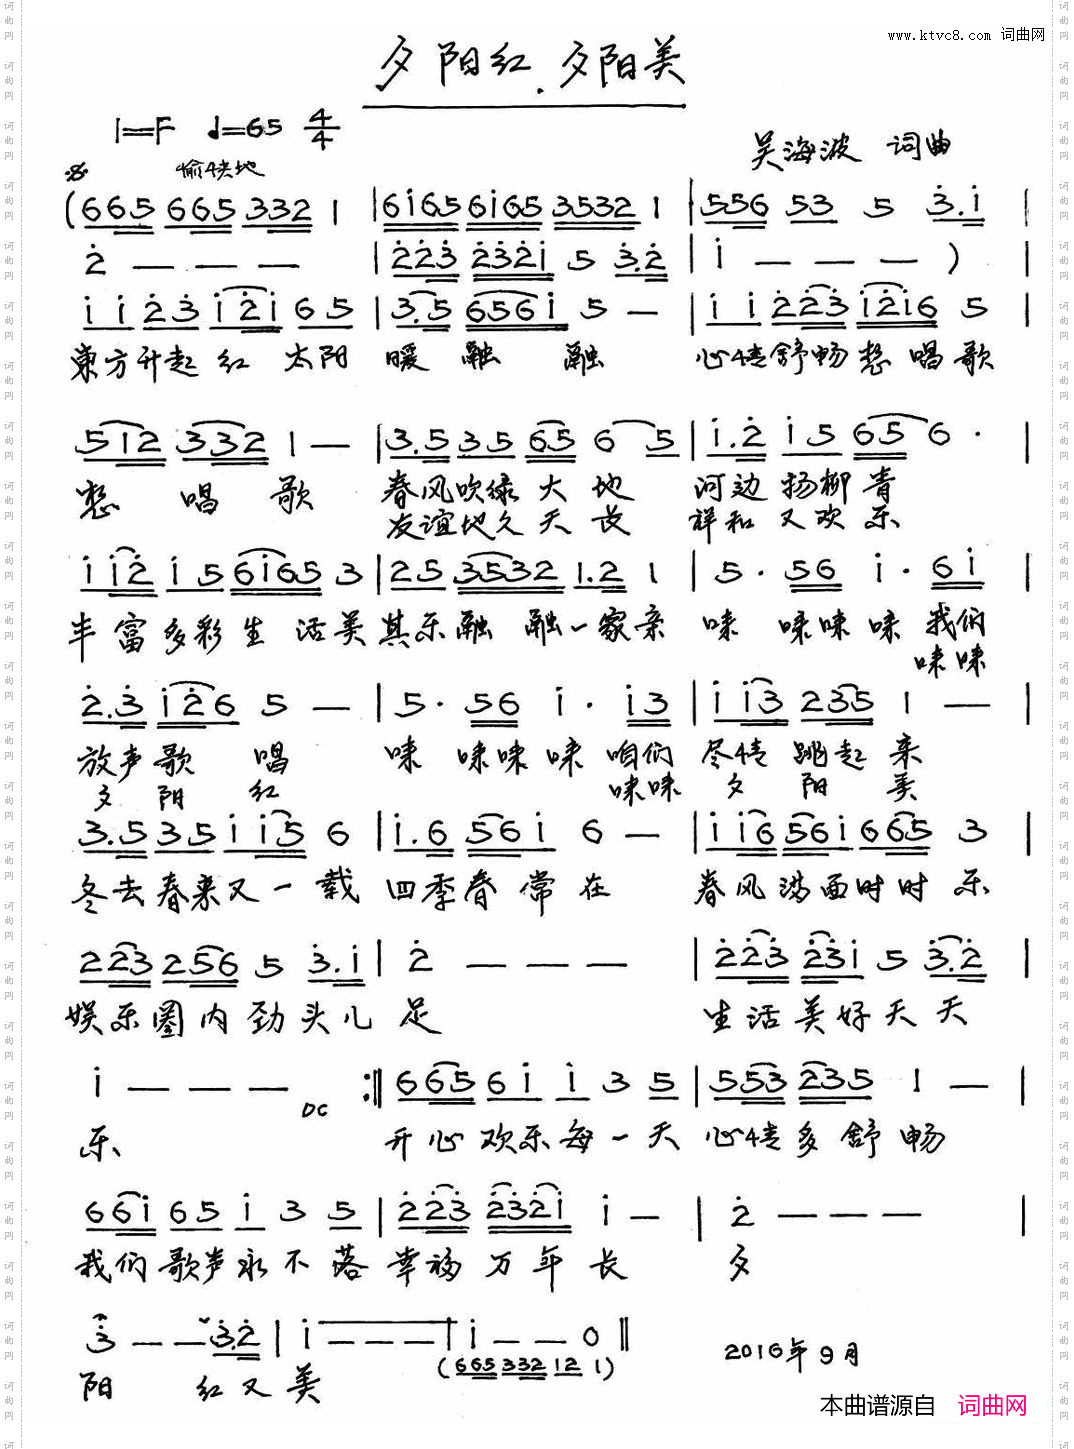 www.ktvc8.com 词曲网
夕阳红.夕阳美
1=F ♩=65 4/4
吴海波 词曲
愉快地
(665 665 332 1 | 6i65 6i65 3532 1 | 556 53 5 3.i |
2 — — — | 223 2321 5 3.2 | i — — — ) |
i i 2 3 i2i 6 5 | 3.5 656i 5 — | i i 223 i2i6 5 |
東方升起红太阳 暖融融 心情舒畅想唱歌
512 332 1 — | 3.5 35 65 6 5 | i.2 i5 65 6 · |
想唱歌 春风吹绿大地 河边扬柳青
友谊地久天长 祥和又欢乐
i i2 i5 6i65 3 | 25 3532 1.2 1 | 5 · 56 i · 6i |
丰富多彩生活美 其乐融融一家亲 味 味味味 我们
味味
2.3 i26 5 — | 5 · 56 i · i3 | i i3 235 1 — |
放声歌唱 味 味味味 咱们 尽情跳起来
夕阳红 味味 夕阳美
3.5 35 i i5 6 | i.6 56i 6 — | i i6 56i 665 3 |
冬去春来又一载 四季春常在 春风满面时时乐
223 256 5 3.i | 2 — — — | 223 23i 5 3.2 |
娱乐圈内劲头儿足 生活美好天天
i — — — DC :‖ 665 6i i 3 5 | 553 235 1 — |
乐 开心欢乐每一天 心情多舒畅
66i 65 i 3 5 | 223 232i i — | 2 — — — |
我们歌声永不落 幸福万年长 夕
3 — — 3.2 | i — — — | i — — 0 ‖
(665 332 12 1)
阳 红又美
2016年9月
本曲谱源自 词曲网